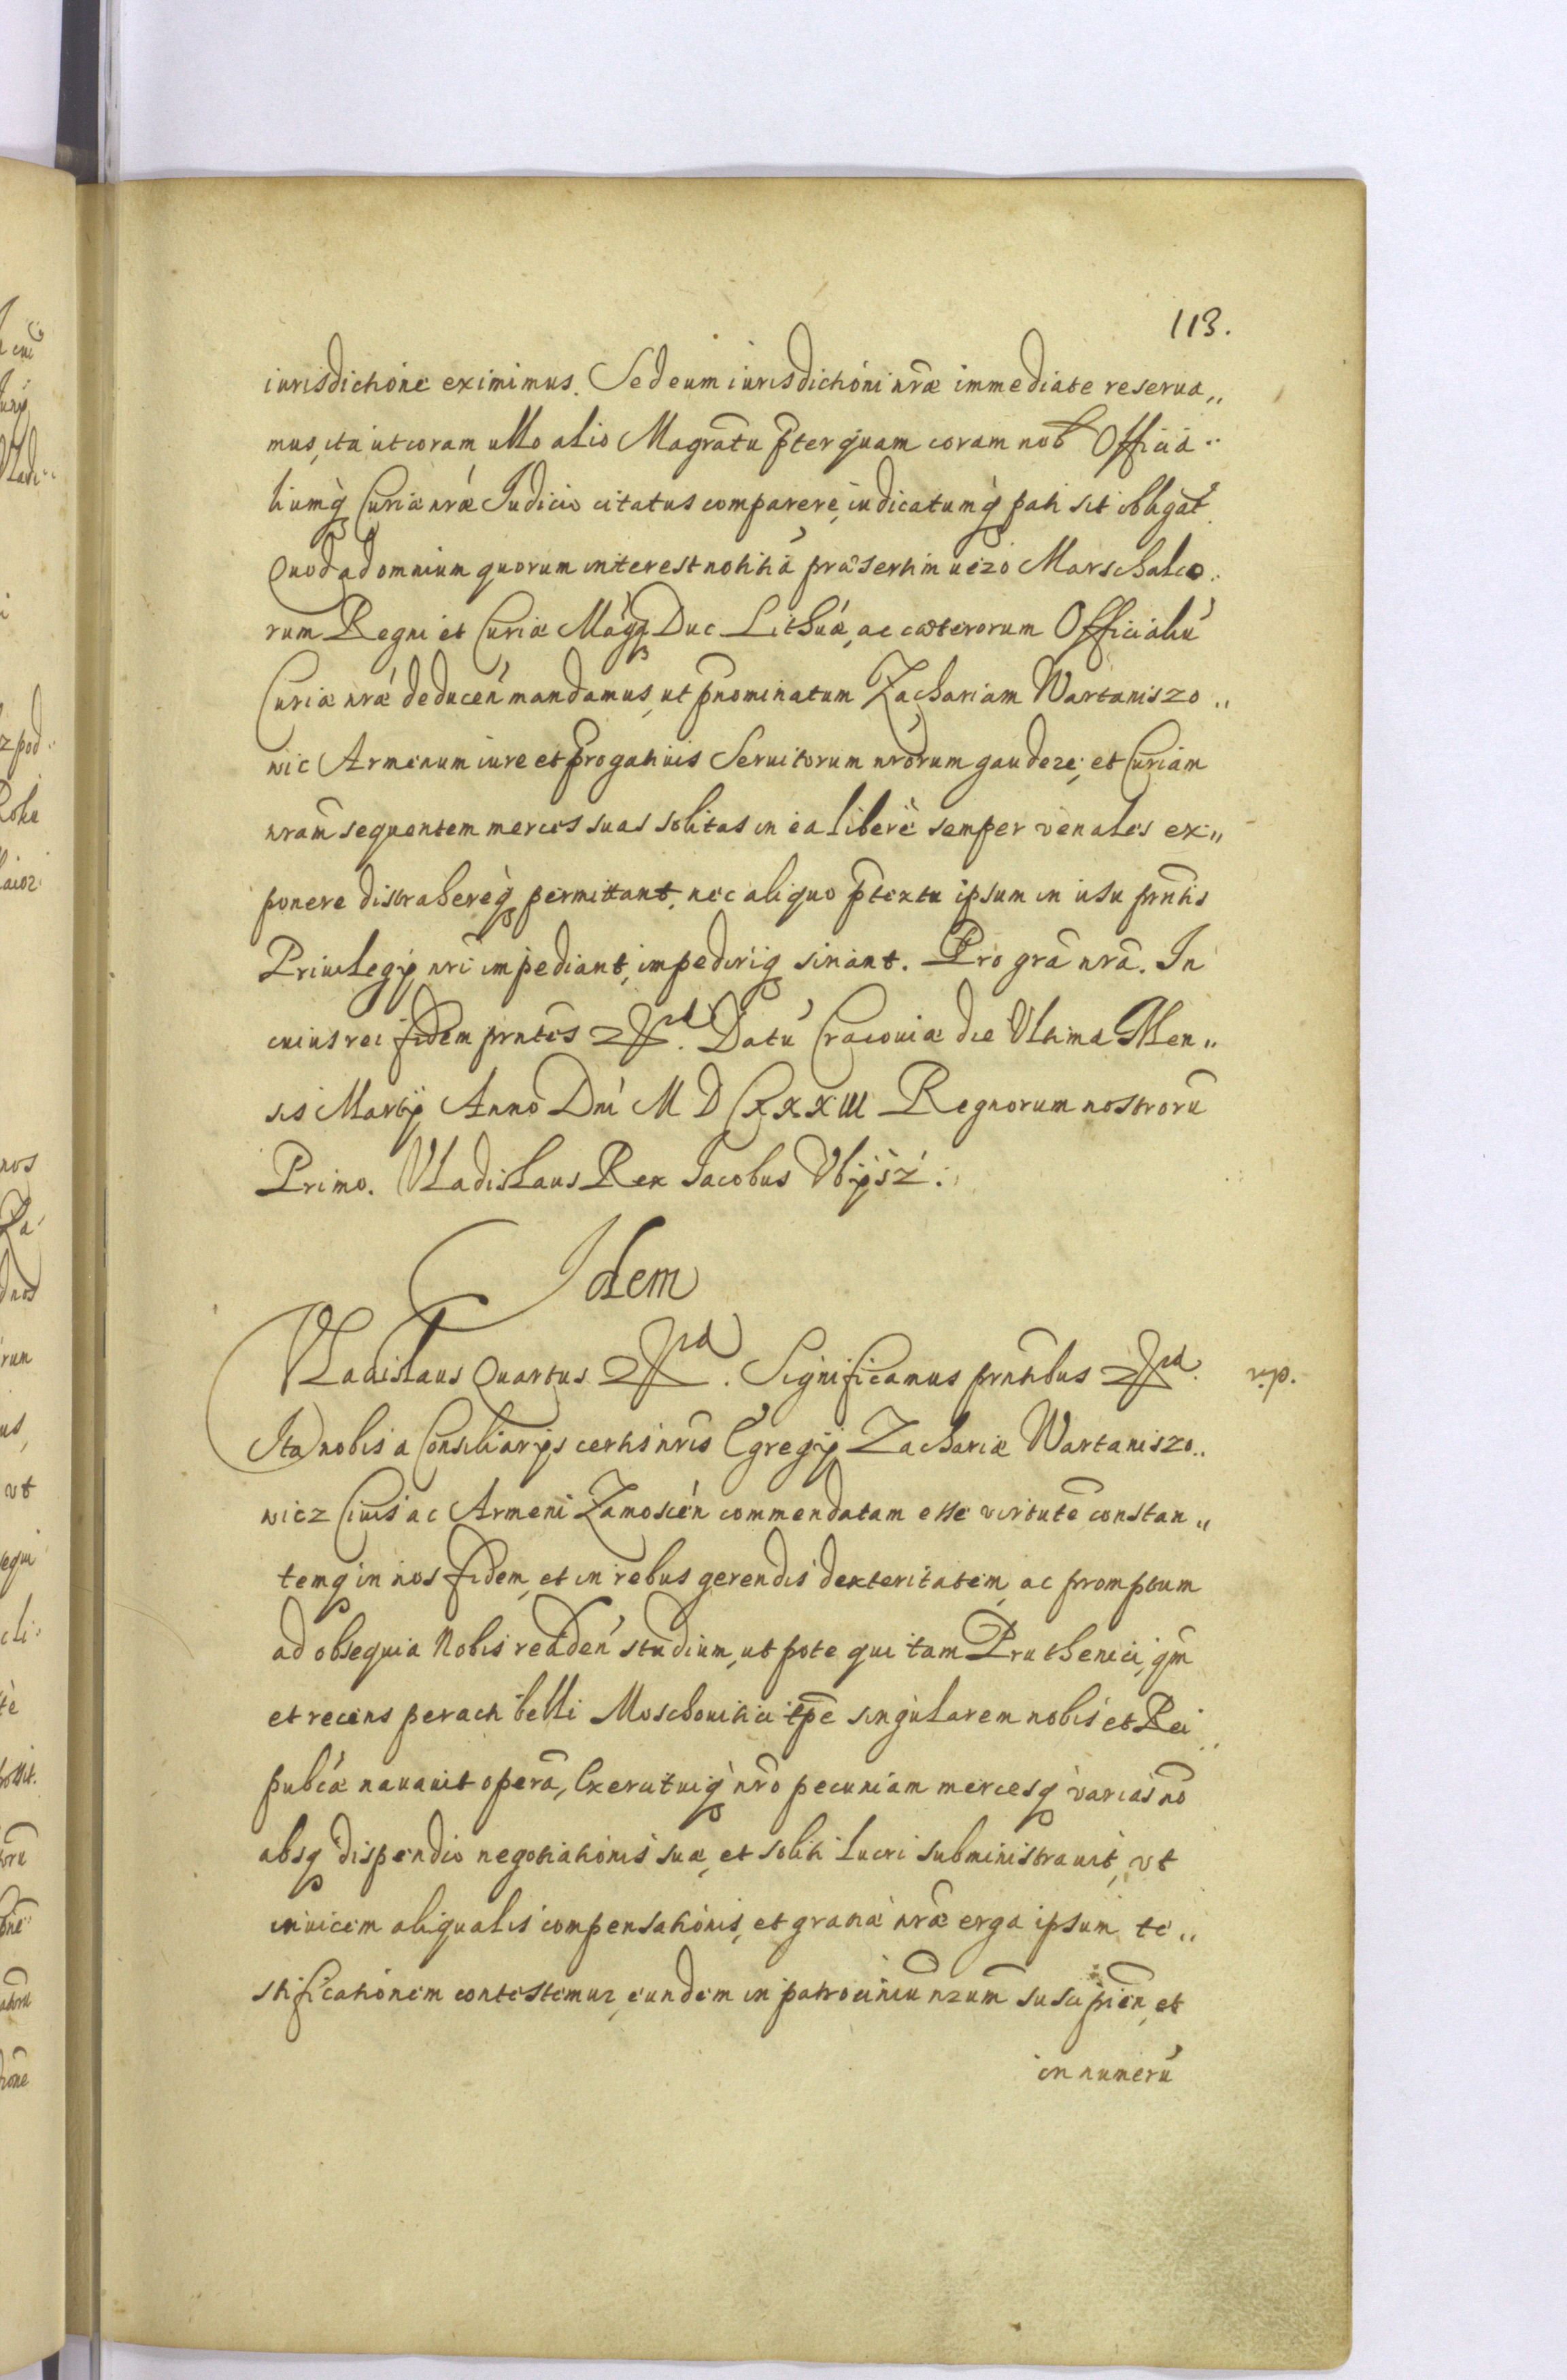 113.
iurisdictione eximimus. Sed eum iurisdictioni nr̃æ immediate reserua„
mus, ita ut coram ullo alio Magr̃atu p̃terquam coram nob Officia„
liumq́ Curiæ nr̃æ Iudicio citatus comparere, iudicatumq́ pati sit obligat̃.
Quod ad omnium quorum interest notitiã præsertim uero Marschalco„
rum Regni et Curiæ Magq́ Duc Lithuæ, ac cæterorum Officialiũ
Curiæ nr̃æ deducen̄ mandamus, ut p̃nominatum Zachariam Wartaniszo„
wic Armenum iure et p̃rogatiuis Seruitorum nr̃orum gaudere, et Curiam
nram̃ sequentem merces suas solitas in ea liberè semper venales ex„
ponere distrahereq́ permittant, nec aliquo p̃textu ipsum in usu prñtis
Priuilegij nrĩ impediant, impediriq́ sinant. Pro grã nrã. In
cuius rei fidem prñtes &rd. Datũ Cracouiæ die Vltima Men„
sis Martij Anno Dni M D CXXXIII Regnorum nostrorũ
Primo. Vladislaus Rex Iacobus Vbijsz:
Idem
Vladislaus Quartus &rd. Significamus prñtibus &rd.
Ita nobis a Consiliarijs certis nrĩs Egregij Zachariæ Wartaniszo„
wicz Ciuis ac Armeni Zamoscen̄ commendatam esse virtutẽ constan„
temq́ in nos fidem, et in rebus gerendis dexteritatem, ac promptum
ad obsequia Nobis redden̄ studium, ut pote qui tam Pruthenici, qm̃
et recens peracti belli Moschouitici tp̃e singularem nobis et Rei
pubcæ nauauit operã, Exercituiq́ nrõ pecuniam mercesq́ varias nõ
absq́ dispendio negotiationis suæ, et soliti lucri subministrauit, vt
inuicem aliqualis compensationis, et gratiæ nr̃æ erga ipsum te„
stificationem contestemur, eundem in patrociniũ nrũm suscipien̄, et
in numerũ